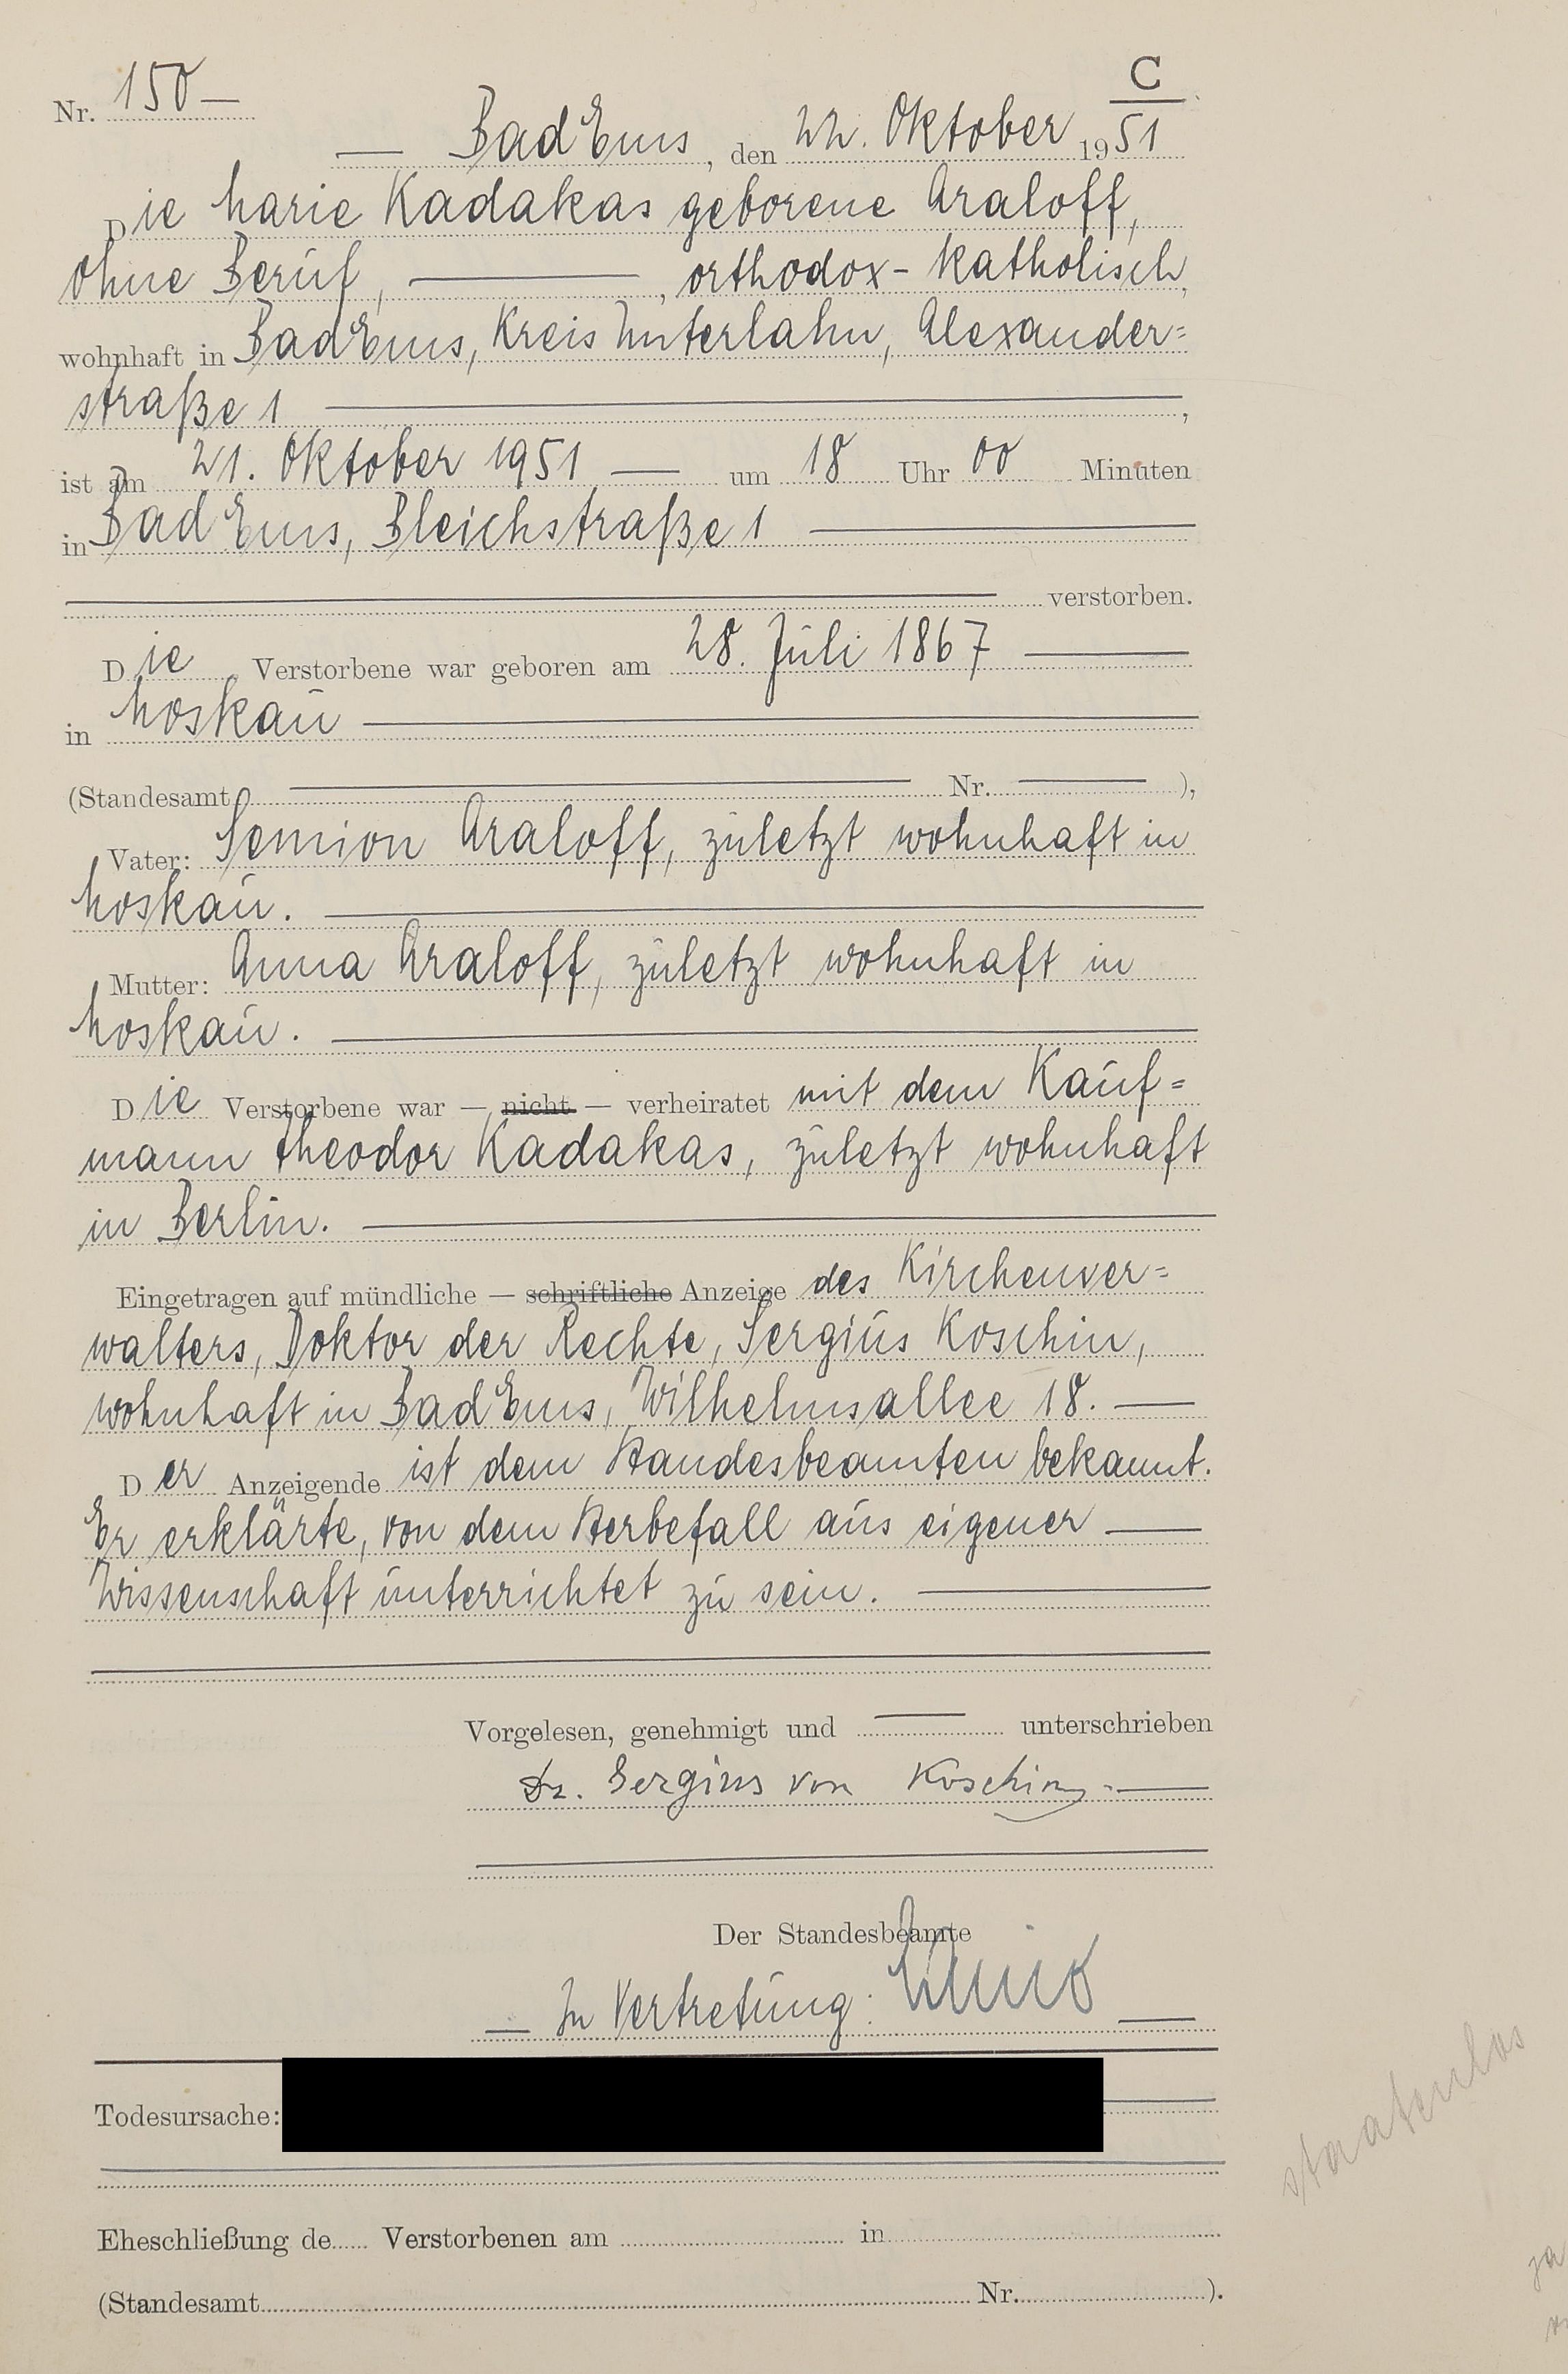 C
Nr. 150 —
— Bad Ems, den 22. Oktober 1951
Die Marie Kadakas geborene Araloff,
ohne Beruf, ———, orthodox-katholisch,
wohnhaft in Bad Ems, Kreis Unterlahn, Alexander=
straße 1 ———,
ist am 21. Oktober 1951 — um 18 Uhr 00 Minuten
in Bad Ems, Bleichstraße 1 ———
verstorben.
Die Verstorbene war geboren am 28. Juli 1867 ———
in Moskau ———
(Standesamt ——— Nr. ———),
Vater: Semion Araloff, zuletzt wohnhaft in
Moskau. ———
Mutter: Anna Araloff, zuletzt wohnhaft in
Moskau. ———
Die Verstorbene war — nicht — verheiratet mit dem Kauf=
mann Theodor Kadakas, zuletzt wohnhaft
in Berlin. ———
Eingetragen auf mündliche — schriftliche Anzeige des Kirchenver=
walters, Doktor der Rechte, Sergius Koschin,
wohnhaft in Bad Ems, Wilhelmsallee 18. —
Der Anzeigende ist dem Standesbeamten bekannt.
Er erklärte, von dem Sterbefall aus eigener —
Wissenschaft unterrichtet zu sein. ———
Vorgelesen, genehmigt und ——— unterschrieben
Dr. Sergius von Koschin. —
Der Standesbeamte
— In Vertretung: —
Todesursache:
staatenlos
Eheschließung de..... Verstorbenen am ..... in .....
(Standesamt ..... Nr. .....).